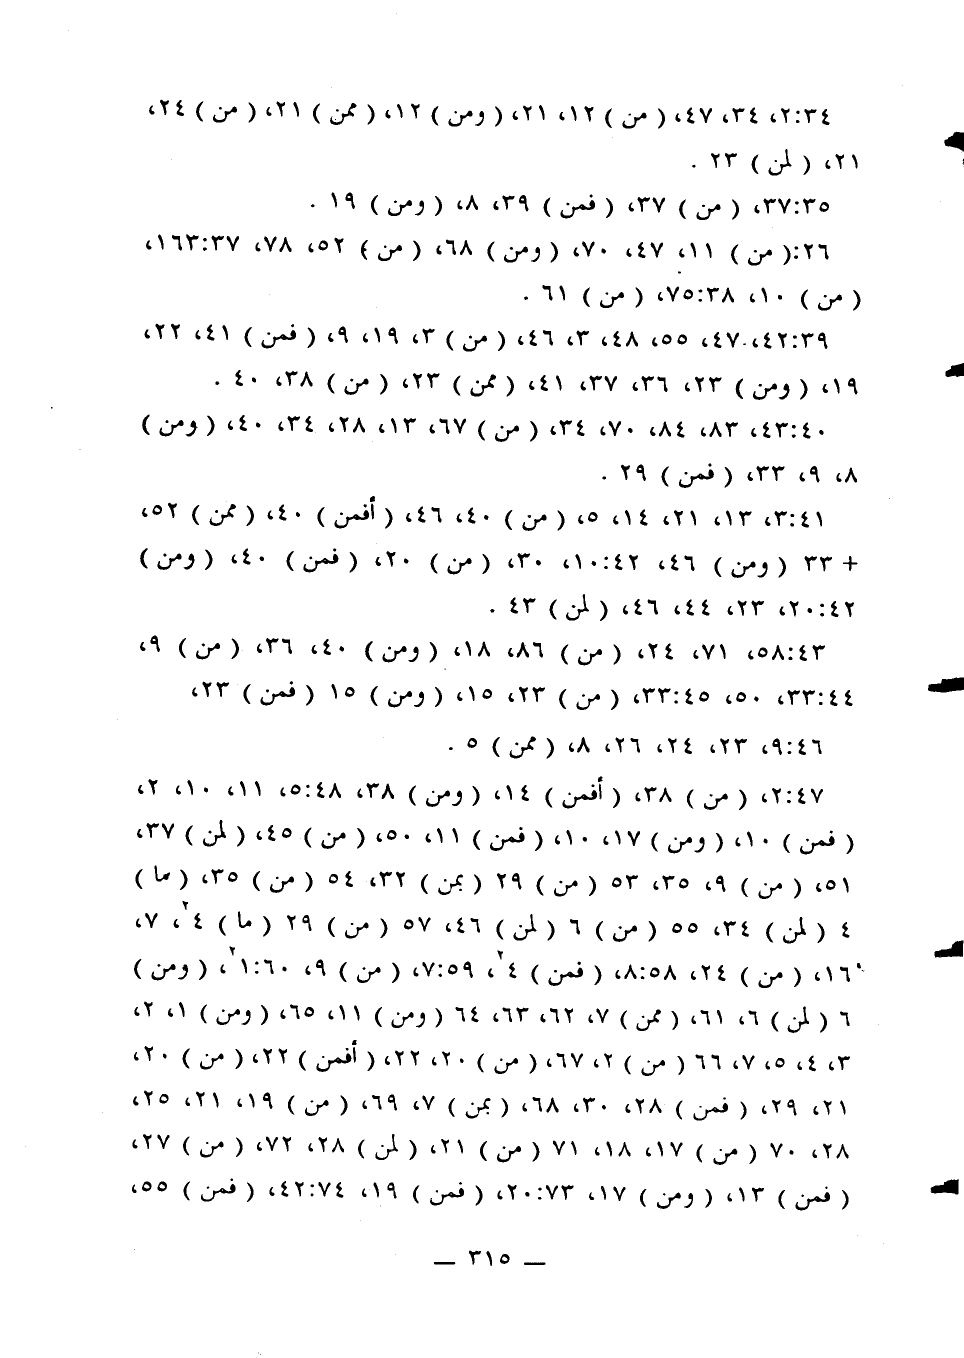 ٢:٣٤، ٣٤، ٤٧، ( من ) ١٢، ٢١، ( ومن ) ١٢، ( ممن ) ٢١، ( من ) ٢٤،
٢١، ( لمن ) ٢٣ .
٣٧:٣٥، ( من ) ٣٧، ( فمن ) ٣٩، ٨، ( ومن ) ١٩ .
٢٦:( من ) ١١، ٤٧، ٧٠، ( ومن ) ٦٨، ( من ) ٥٢، ٧٨، ١٦٣:٣٧،
( من ) ١٠، ٧٥:٣٨، ( من ) ٦١ .
٤٢:٣٩، ٤٧، ٥٥، ٤٨، ٣، ٤٦، ( من ) ٣، ١٩، ٩، ( فمن ) ٤١، ٢٢،
١٩، ( ومن ) ٢٣، ٣٦، ٣٧، ٤١، ( ممن ) ٢٣، ( من ) ٣٨، ٤٠ .
٤٣:٤٠، ٨٣، ٨٤، ٧٠، ٣٤، ( من ) ٦٧، ١٣، ٢٨، ٣٤، ٤٠، ( ومن )
٨، ٩، ٣٣، ( فمن ) ٢٩ .
٣:٤١، ١٣، ٢١، ١٤، ٥، ( من ) ٤٠، ٤٦، ( أفمن ) ٤٠، ( ممن ) ٥٢،
+ ٣٣ ( ومن ) ٤٦، ١٠:٤٢، ٣٠، ( من ) ٢٠، ( فمن ) ٤٠، ( ومن )
٢٠:٤٢، ٢٣، ٤٤، ٤٦، ( لمن ) ٤٣ .
٥٨:٤٣، ٧١، ٢٤، ( من ) ٨٦، ١٨، ( ومن ) ٤٠، ٣٦، ( من ) ٩،
٣٣:٤٤، ٥٠، ٣٣:٤٥، ( من ) ٢٣، ١٥، ( ومن ) ١٥ ( فمن ) ٢٣،
٩:٤٦، ٢٣، ٢٤، ٢٦، ٨، ( ممن ) ٥ .
٢:٤٧، ( من ) ٣٨، ( أفمن ) ١٤، ( ومن ) ٣٨، ٥:٤٨، ١١، ١٠، ٢،
( فمن ) ١٠، ( ومن ) ١٧، ١٠، ( فمن ) ١١، ٥٠، ( من ) ٤٥، ( لمن ) ٣٧،
٥١، ( من ) ٩، ٣٥، ٥٣ ( من ) ٢٩ ( بمن ) ٣٢، ٥٤ ( من ) ٣٥، ( مما )
٤ ( لمن ) ٣٤، ٥٥ ( من ) ٦ ( لمن ) ٤٦، ٥٧ ( من ) ٢٩ ( ما ) ٤٢، ٧،
١٦، ( من ) ٢٤، ٨:٥٨، ( فمن ) ٤٢، ٧:٥٩، ( من ) ٩، ١:٦٠٢، ( ومن )
٦ ( لمن ) ٦، ٦١، ( ممن ) ٧، ٦٢، ٦٣، ٦٤ ( ومن ) ١١، ٦٥، ( ومن ) ١، ٢،
٣، ٤، ٥، ٧، ٦٦ ( من ) ٢، ٦٧، ( من ) ٢٠، ٢٢، ( أفمن ) ٢٢، ( من ) ٢٠،
٢١، ٢٩، ( فمن ) ٢٨، ٣٠، ٦٨، ( بمن ) ٧، ٦٩، ( من ) ١٩، ٢١، ٢٥،
٢٨، ٧٠ ( من ) ١٧، ١٨، ٧١ ( من ) ٢١، ( لمن ) ٢٨، ٧٢، ( من ) ٢٧،
( فمن ) ١٣، ( ومن ) ١٧، ٢٠:٧٣، ( فمن ) ١٩، ٤٢:٧٤، ( فمن ) ٥٥،
— ٣١٥ —